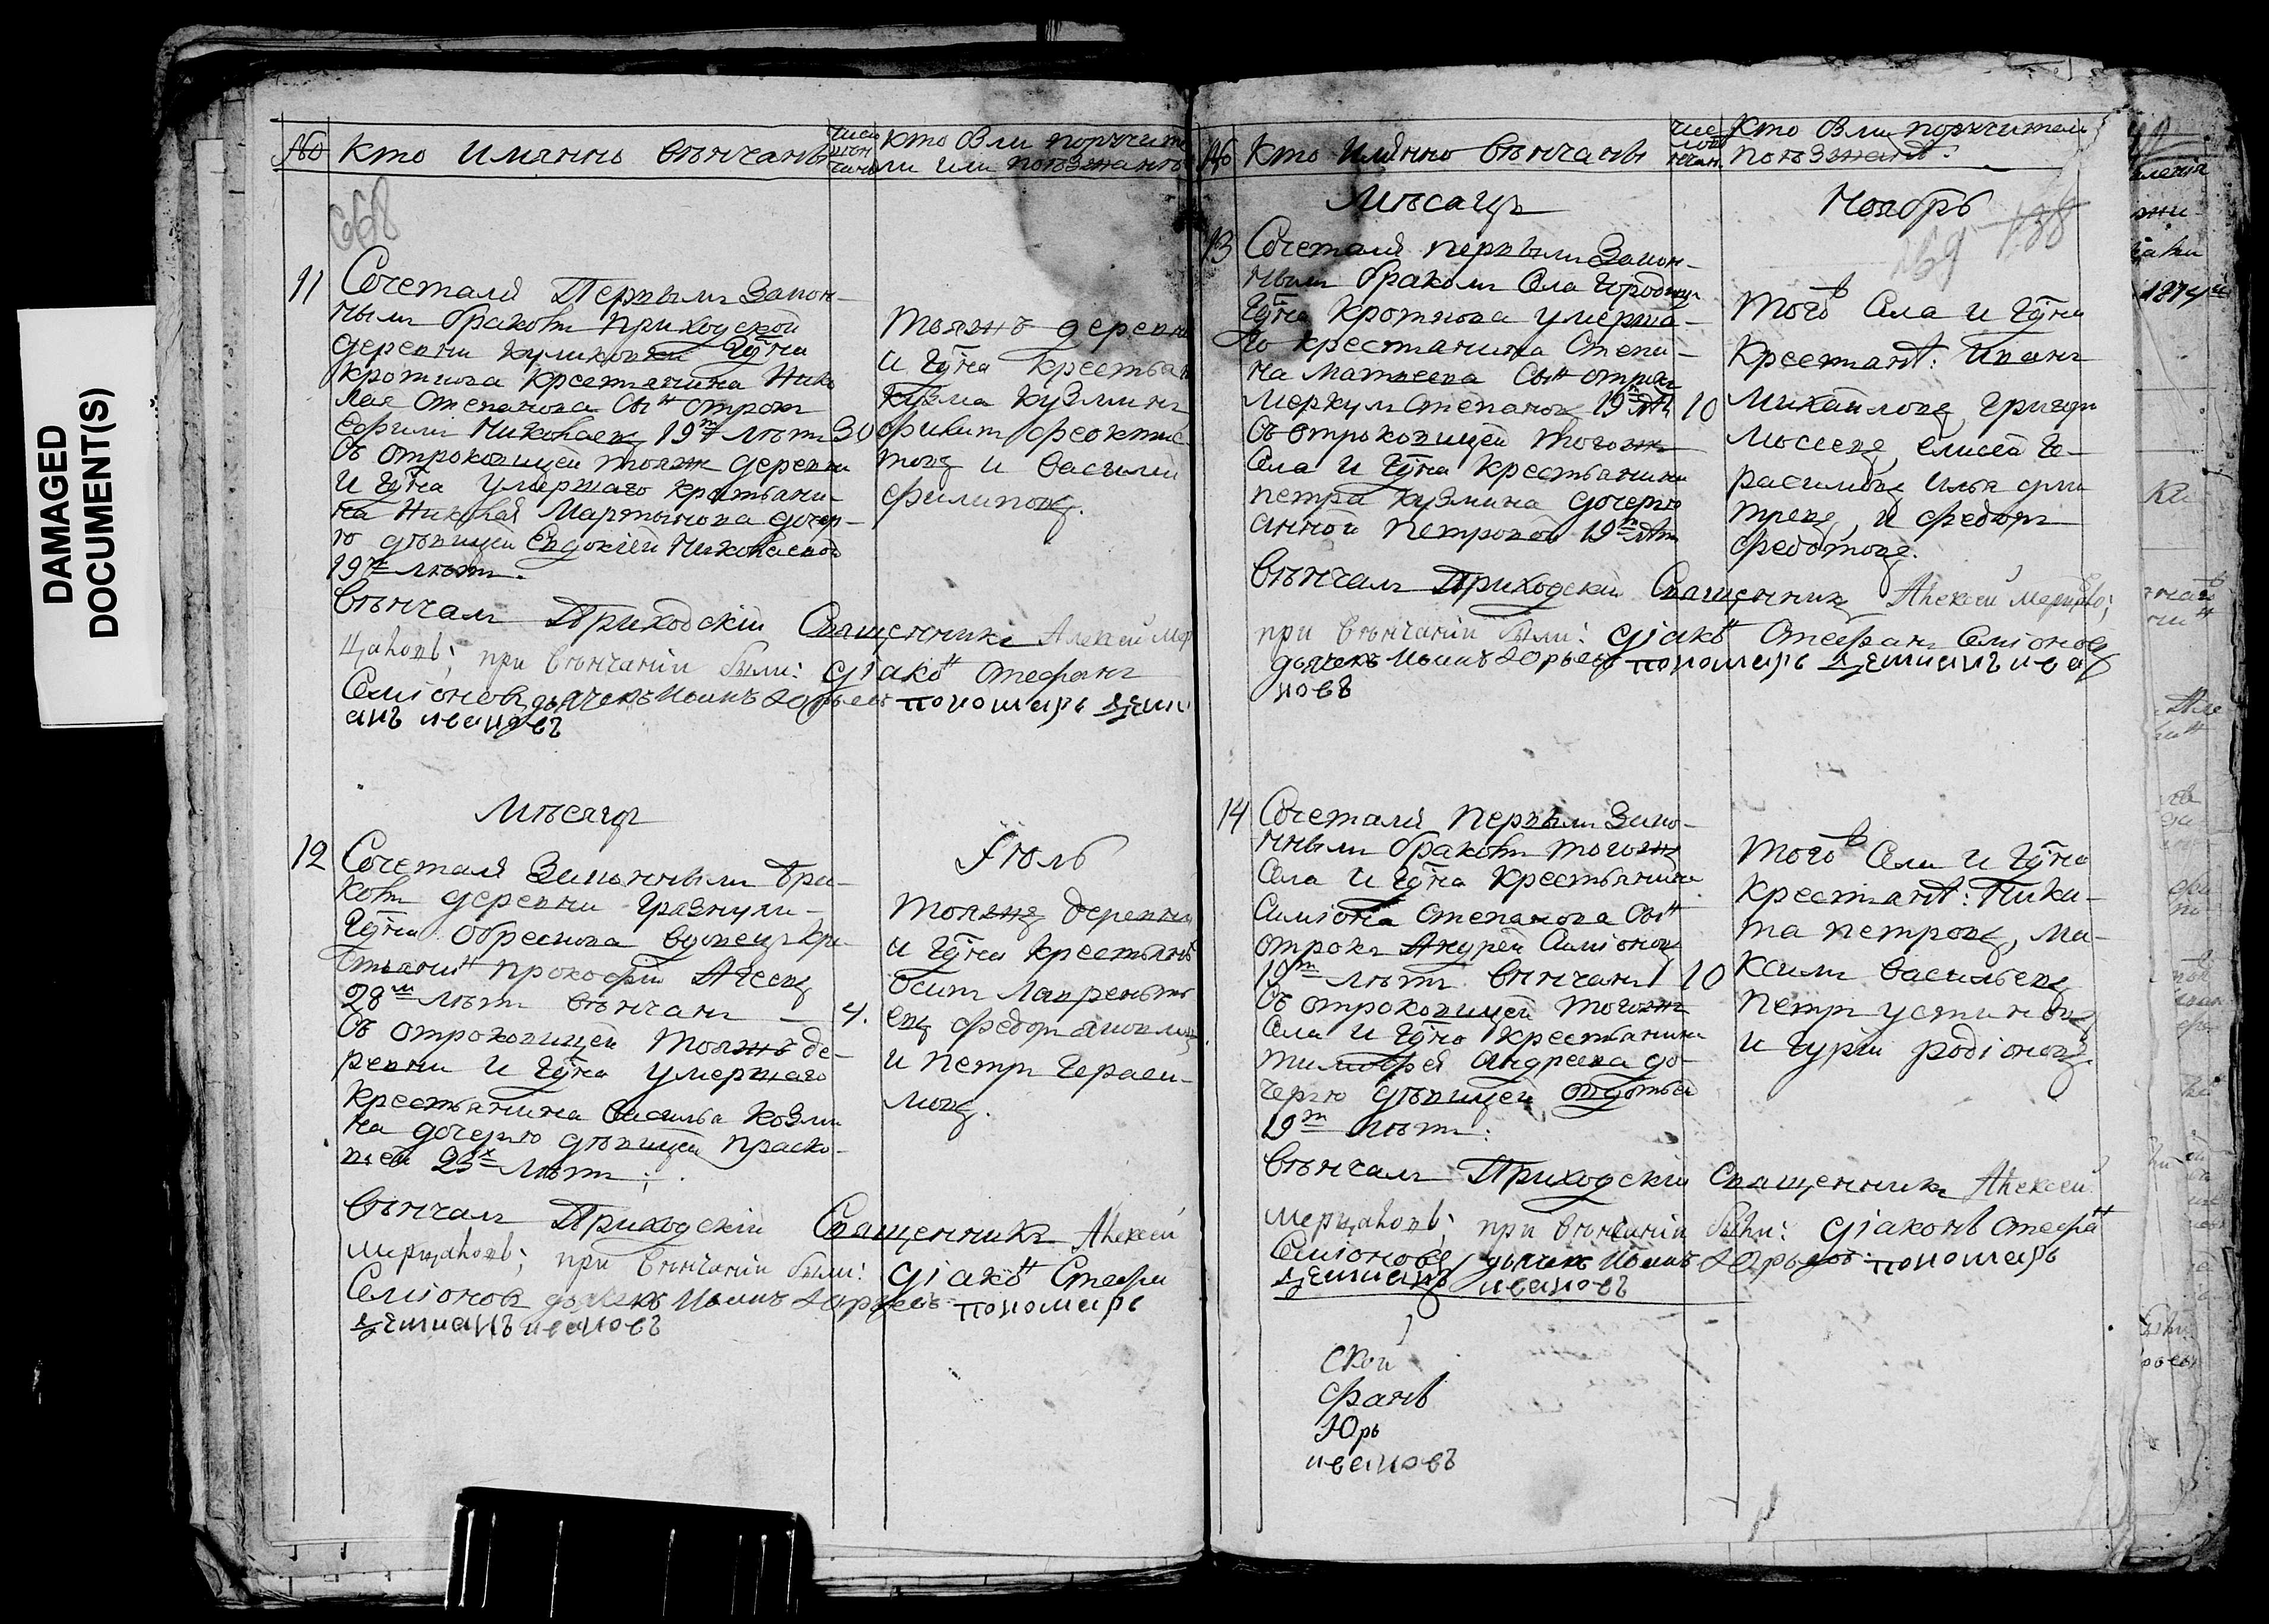 DAMAGED
DOCUMENT(S)
№
Кто имянно венчаны
число
венчания
Кто были поручите
ли или поезжаня
668
11
Сочетался Первымъ закон-
нымъ бракомъ приходской
деревни Куликовки Гдна
Кроткова крестьянина Нико
лая Степанова сынъ отрокъ
Ефимъ Николаевъ 19ть летъ
30
съ отроковицей тояжъ деревни
и Гдна умершаго крестьяни-
на Николая Мартынова дочер-
ю девицей Евдокіей Николаевой
19ть летъ.
Тояжъ деревни
и Гдна крестьянъ
Кузма Кузминъ
Фикит Феоктис
товъ и Василій
Филиповъ.
Венчалъ Приходскій Священникъ Алексей Мер
цаловъ; при венчаніи были: діаконъ Стефанъ
Семіоновъ дьячекъ Иоаннъ Юрьевъ пономарь Деми
анъ ивановъ
Месяцъ
Іюль
12
Сочетался Законнымъ бра-
комъ деревни Грязнули
Гдна Обрескова вдовецъ кре
стьянинъ Прокофій Агеевъ
28мъ летъ венчанъ —
4.
съ отроковицей тояжъ де-
ревни и Гдна умершаго
крестьянина Василья Козми
на дочерью девицей Праско-
вьей 23х летъ;
Тояжъ деревни
и Гдна крестьянъ
Осипъ Лаврентъ
евъ Федоръ Яковлевъ
и Петръ Гераси-
мовъ.
Венчалъ Приходскій Священникъ Алексей
Мерцаловъ; при венчаніи были: діаконъ Стефа
Семіоновъ дьячекъ Иоаннъ Юрьевъ пономарь
Деміанъ ивановъ
№
Кто имянно венчаны
Кто были поручители
поезжанъ:
Месяцъ
Ноябрь
169
138
13
Сочетался первымъ закон-
нымъ бракомъ Села Городищъ
Гдна Кроткова умерша-
го крестьянина Степа-
на Матвеева сынъ отрокъ
Меркулъ Степановъ 19ть летъ
10
съ отроковицей тогожъ
Села и Гдна крестьянина
Петра Кузмина дочерью
Анной Петровой 19ть летъ
Того Села и Гдна
Крестьянъ: Иванъ
Михайловъ, Григори
Мосеевъ, Елисей Ге-
расимовъ Илья Дми
триевъ, и Федоръ
Федотовъ.
Венчалъ Приходскій Священникъ Алексей Мерцаловъ;
при венчаніи были: діаконъ Стефанъ Семіоновъ
дьячекъ Иоаннъ Юрьевъ пономарь Деміанъ ива
новъ
14
Сочетался Первымъ Зако-
ннымъ бракомъ тогожъ
Села и Гдна Крестьянина
Симіона Степанова сынъ
отрокъ Андрей Симіоновъ
19ть летъ венчанъ
10
съ отроковицей тогожъ
Села и Гдна крестьянина
Тимофея Андреева до-
черью девицей Авдотьей
19ть летъ:
Того Села и Гдна
крестьянъ: Ники-
та Петровъ, Ма-
ксимъ Васильевъ
Петръ Устиновъ
и Гурій Родіоновъ.
Венчалъ Приходскій Священникъ Алексей
Мерцаловъ; при венчаніи были: діаконъ Стефанъ
Семіоновъ дьячекъ Иоаннъ Юрьевъ пономарь
Деміанъ ивановъ
Ской
Фанъ
Юрь
ивановъ